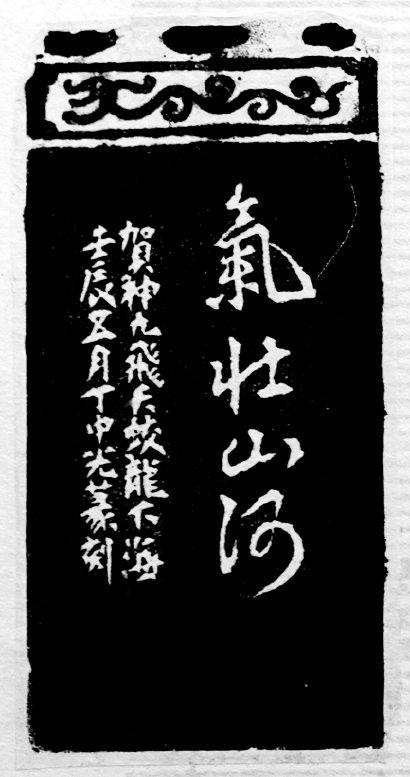 氣壯山河
賀神九飛天蛟龍下海
壬辰五月丁中光篆刻